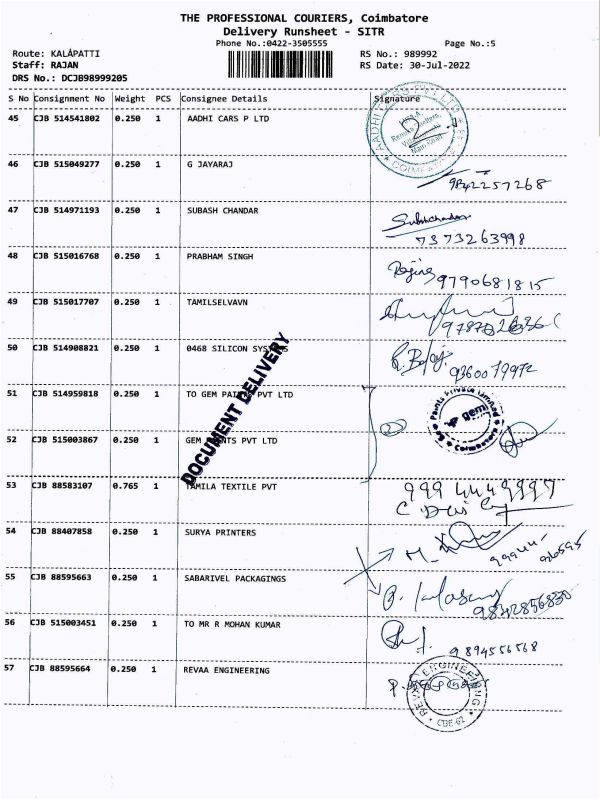 THE PROFESSIONAL COURIERS, Coimbatore
Delivery Runsheet - SITR
Phone No.:0422-3505555 Page No.:5
Route: KALAPATTI RS No.: 989992
Staff: RAJAN RS Date: 30-Jul-2022
DRS No.: DCJB98999205
S No Consignment No Weight PCS Consignee Details Signature
45 CJB 514541802 0.250 1 AADHI CARS P LTD
AADHI CARS PVT LTD
COIMBATORE
46 CJB 515049277 0.250 1 G JAYARAJ
9842257268
47 CJB 514971193 0.250 1 SUBASH CHANDAR
Subashchandar
7373263998
48 CJB 515016768 0.250 1 PRABHAM SINGH
9790681815
49 CJB 515017707 0.250 1 TAMILSELVAVN
50 CJB 514908821 0.250 1 0468 SILICON SYSTEMS
9360079972
DOCUMENT DELIVERY
51 CJB 514959818 0.250 1 TO GEM PAINTS PVT LTD
Paints Private Limited
gem
Coimbatore
2
52 CJB 515003867 0.250 1 GEM PAINTS PVT LTD
53 CJB 88583107 0.765 1 TAMILA TEXTILE PVT
54 CJB 88407858 0.250 1 SURYA PRINTERS
55 CJB 88595663 0.250 1 SABARIVEL PACKAGINGS
9842856830
56 CJB 515003451 0.250 1 TO MR R MOHAN KUMAR
9894556568
57 CJB 88595664 0.250 1 REVAA ENGINEERING
REVAA ENGINEERING
CBE-62